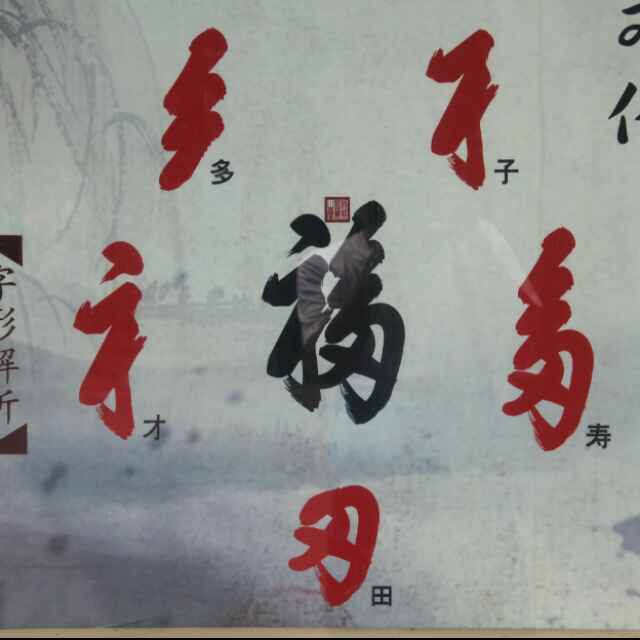 多
子
福
才
寿
田
字形解析